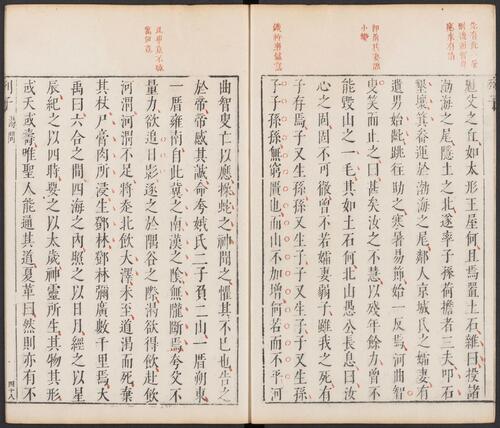 魁父之丘如太形王屋何且焉置土石雜曰投諸
渤海之尾隱土之北遂率子孫荷擔者三夫叩石
墾壤箕畚運於渤海之尾鄰人京城氏之孀妻有
遺男始齔跳往助之寒暑易節始一反焉河曲智
叟笑而止之曰甚矣汝之不慧以殘年餘力曾不
能毀山之一毛其如土石何北山愚公長息曰汝
心之固固不可徹曾不若孀妻弱子雖我之死有
子存焉子又生孫孫又生子子又生子子又生孫
子子孫孫無窮匱也而山不加增何若而不平河
小變
曲智叟亡以應操蛇之神聞之懼其不已也告之
於帝帝感其誠命夸娥氏二子負二山一厝朔東
一厝雍南自此冀之南漢之陰無隴斷焉夸父不
量力欲追日影逐之於隅谷之際渴欲得飲赴飲
河渭河渭不足將走北飲大澤未至道渴而死棄
其杖尸膏肉所浸生鄧林鄧林彌廣數千里焉大
禹曰六合之間四海之內照之以日月經之以星
辰紀之以四時要之以太歲神靈所生其物異形
或夭或壽唯聖人能通其道夏革曰然則亦有不
列子 湯問 四十八